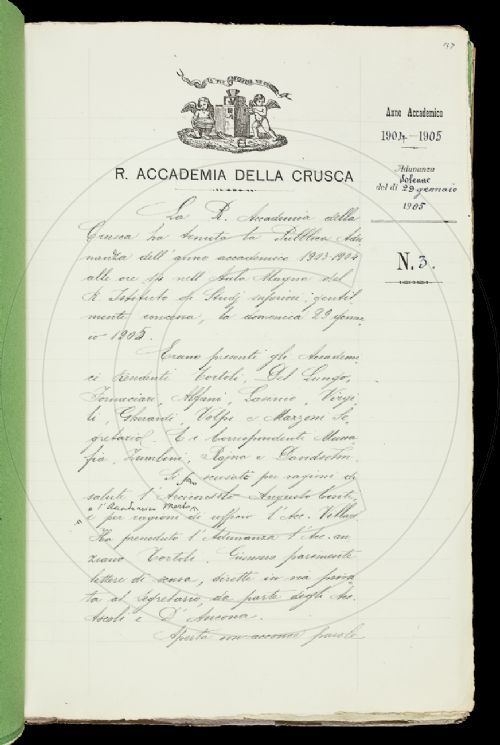 137
Anno Accademico
1904-1905
Adunanza
solenne
del dì 29 gennaio
1905
N. 3.
R. ACCADEMIA DELLA CRUSCA
La R. Accademia della
Crusca ha tenuta la Pubblica Adu
nanza dell'anno accademico 1903-1904
alle ore nell'Aula Magna del
R. Istituto di Studj superiori, gentil
mente concessa, la domenica 29 genna
io 1905.
Erano presenti gli Accademi
ci residenti Tortoli, Del Lungo,
Fornaciari, Alfani, Virgi
li, Gherardi, Volpi e Mazzoni Se
gretario. E i Corrispondenti Mussa
fia, Zumbini, Rajna e Davidsohn.
Si scusato per ragioni di
salute l'Arciconsolo Augusto Conti,
e l'Accademico
e per ragioni di ufficio l'Acc. Villari.
Ha preseduto l'Adunanza l'Acc. an
ziano Tortoli. Giunsero parimente
lettere di scusa, dirette in via priva
ta al Segretario, da parte degli Acc.
Ascoli e D'Ancona.
Aperta con acconce parole